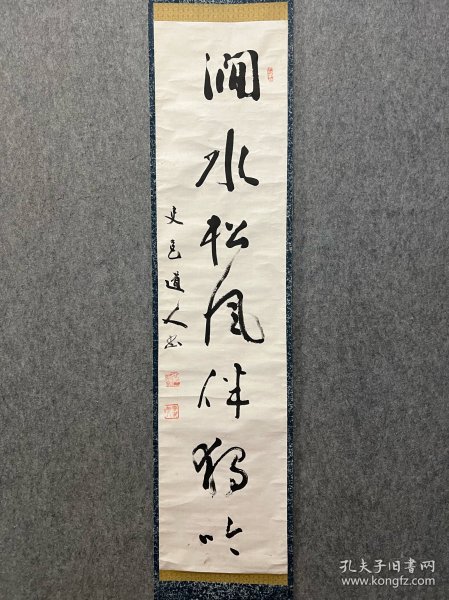 澗水松風伴獨吟
史邑道人書
孔夫子旧书网
www.kongfz.com